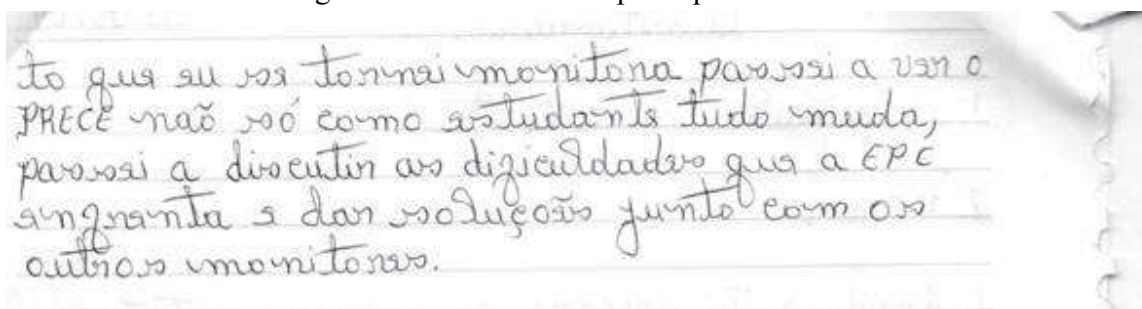 to que eu me tornei monitora passei a ver o
PRECE não só como estudante tudo muda,
passei a discutir as dificuldades que a EPC
enfrenta e dar soluções junto com os
outros monitores.